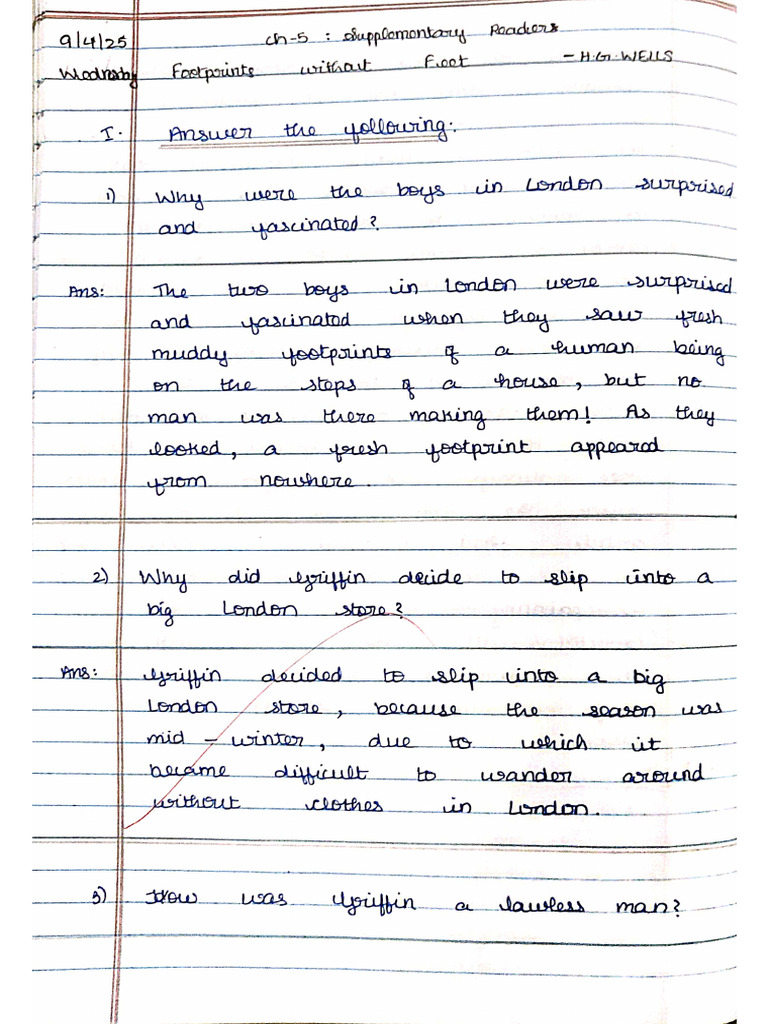 9/4/25 Ch-5 : Supplementary Readers
Wednesday Footprints without Feet - H.G. WELLS
I. Answer the following:
1) Why were the boys in London surprised
and fascinated?
Ans: The two boys in London were surprised
and fascinated when they saw fresh
muddy footprints of a human being
on the steps of a house, but no
man was there making them! As they
looked, a fresh footprint appeared
from nowhere.
2) Why did Griffin decide to slip into a
big London store?
Ans: Griffin decided to slip into a big
London store, because the season was
mid - winter, due to which it
became difficult to wander around
without clothes in London.
3) How was Griffin a lawless man?